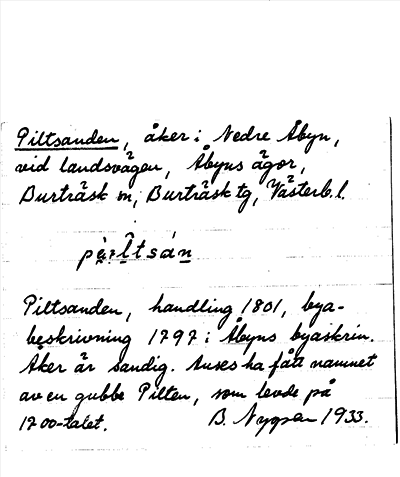 Piltsanden, åker i Nedre Åbyn,
vid landsvägen, Åbyns ägor,
Burträsk sn, Burträsk tg, Västerb. l.
Piltsanden, handling 1801, bya-
beskrivning 1797 i Åbyns byaskrin.
Åker är sandig. Anses ha fått namnet
av en gubbe Pilten, som levde på
1700-talet. B. Nygren 1933.